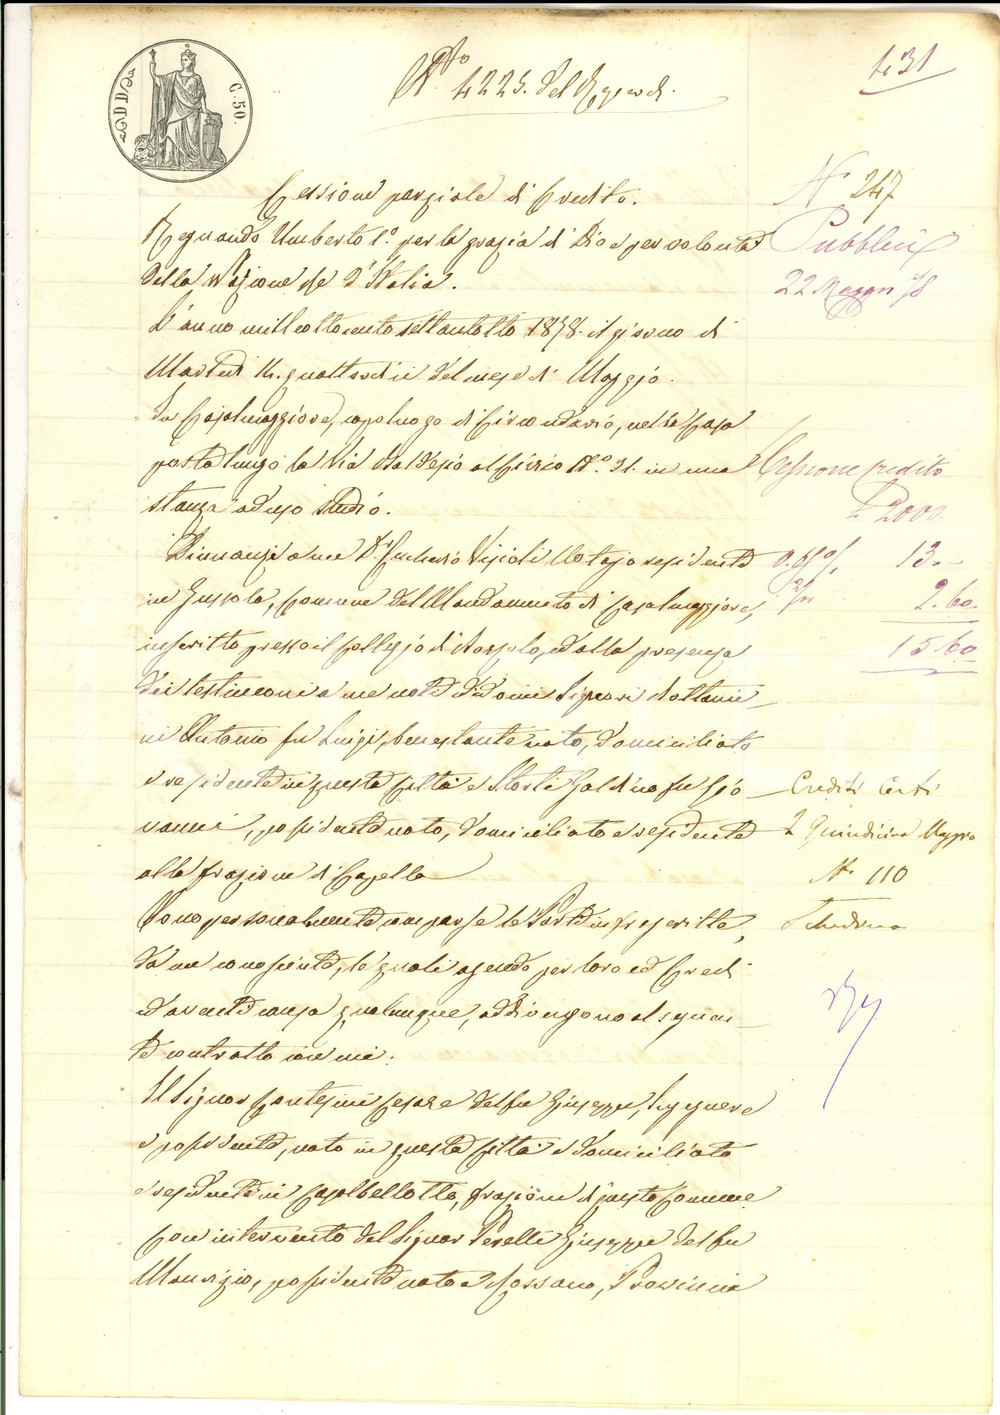 431
N.to 4225. del Rep.
C. 50.
Cessione parziale di Credito.
N. 247
Regnando Umberto I.o per la grazia di Dio e per volontà
della Nazione Re d'Italia.
22 Maggio 78
L'anno milleottocento settantotto 1878. il giorno di
Martedì 14. quattordici del mese di Maggio.
In Casalmaggiore, capoluogo di Circondario, nella Casa
posta lungo la Via al Civico N.o 21. in una
stanza ad uso Studio.
Cessione credito
L 2000.
Dinnanzi a me D.r Vigioli Notajo residente
in Gussola, Comune del Mandamento di Casalmaggiore,
inscritto presso il Collegio di, ed alla presenza
0.65 %
13.
2.60
15.60
dei testimoni a me noti ed idonei Signori
Antonio fu Luigi, benestante nato, domiciliato
e residente in questa Città e Storti Galdino fu Gio
vanni, possidente nato, domiciliato e residente
alla frazione di Capella
Crediti Certi
2 Quindicina Maggio
N. 110
Sono personalmente comparse le Parti infrascritte,
da me conosciute, le quali agendo per loro ed Eredi
ed aventi causa qualunque, addivengono al seguen-
te contratto
Il Signor Contesini Cesare del fu Giuseppe, Ingegnere
e possidente, nato in questa Città e domiciliato
e residente in Casalbellotto, frazione di questo Comune
con intervento del Signor Perelli Giuseppe del fu
Maurizio, possidente nato a Cossano, Provincia